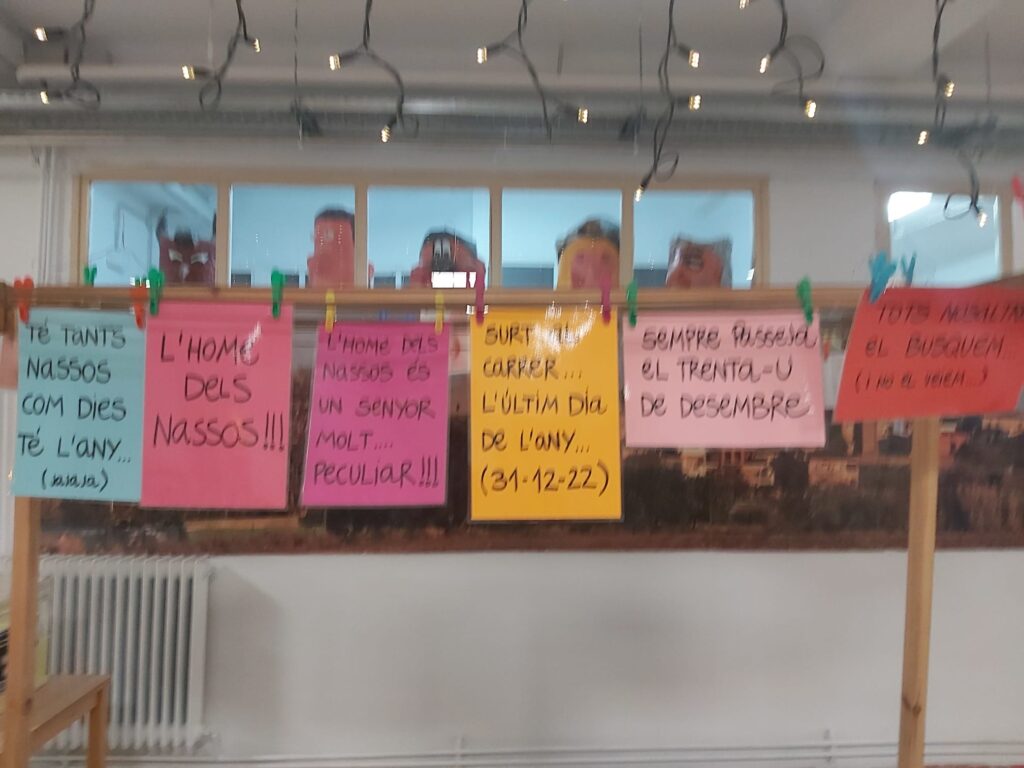 TÉ TANTS
NASSOS
COM DIES
TÉ L'ANY...
(JAJAJA)
L'HOME
DELS
NASSOS!!!
L'HOME DELS
NASSOS ÉS
UN SENYOR
MOLT....
PECULIAR!!!
SURT AL
CARRER...
L'ÚLTIM DÍA
DE L'ANY...
(31-12-22)
SEMPRE PASSEJA
EL TRENTA-U
DE DESEMBRE
TOTS NOSALTRES
EL BUSQUEM
(I NO EL VEIEM...)